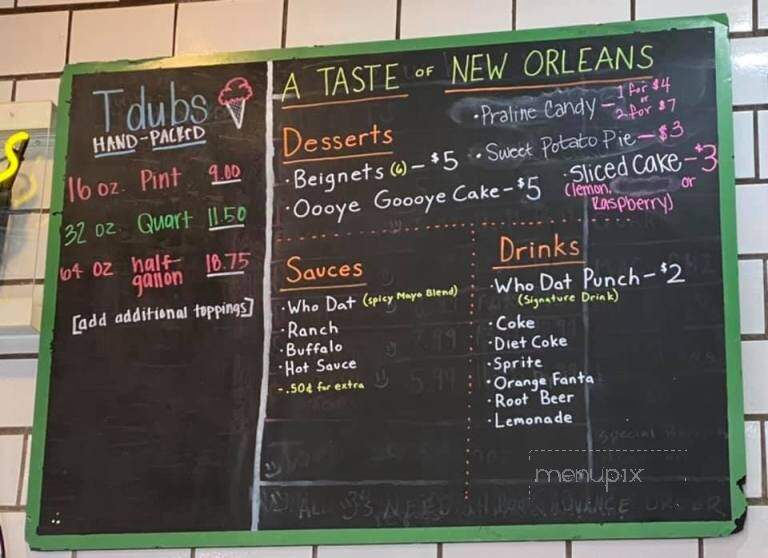 Tdubs
HAND-PACKED
16 oz. Pint 9.00
32 oz Quart 11.50
64 oz half-gallon 18.75
[add additional toppings]
A TASTE OF NEW ORLEANS
Desserts
·Beignets (6) - $5
·Oooye Goooye Cake - $5
·Praline Candy - 1 for $4 or 2 for $7
·Sweet Potato Pie - $3
·Sliced Cake - $3
(lemon, or Raspberry)
Sauces
·Who Dat (spicy Mayo Blend)
·Ranch
·Buffalo
·Hot Sauce
-.50¢ for extra
Drinks
·Who Dat Punch - $2
(Signature Drink)
·Coke
·Diet Coke
·Sprite
·Orange Fanta
·Root Beer
·Lemonade
menupix